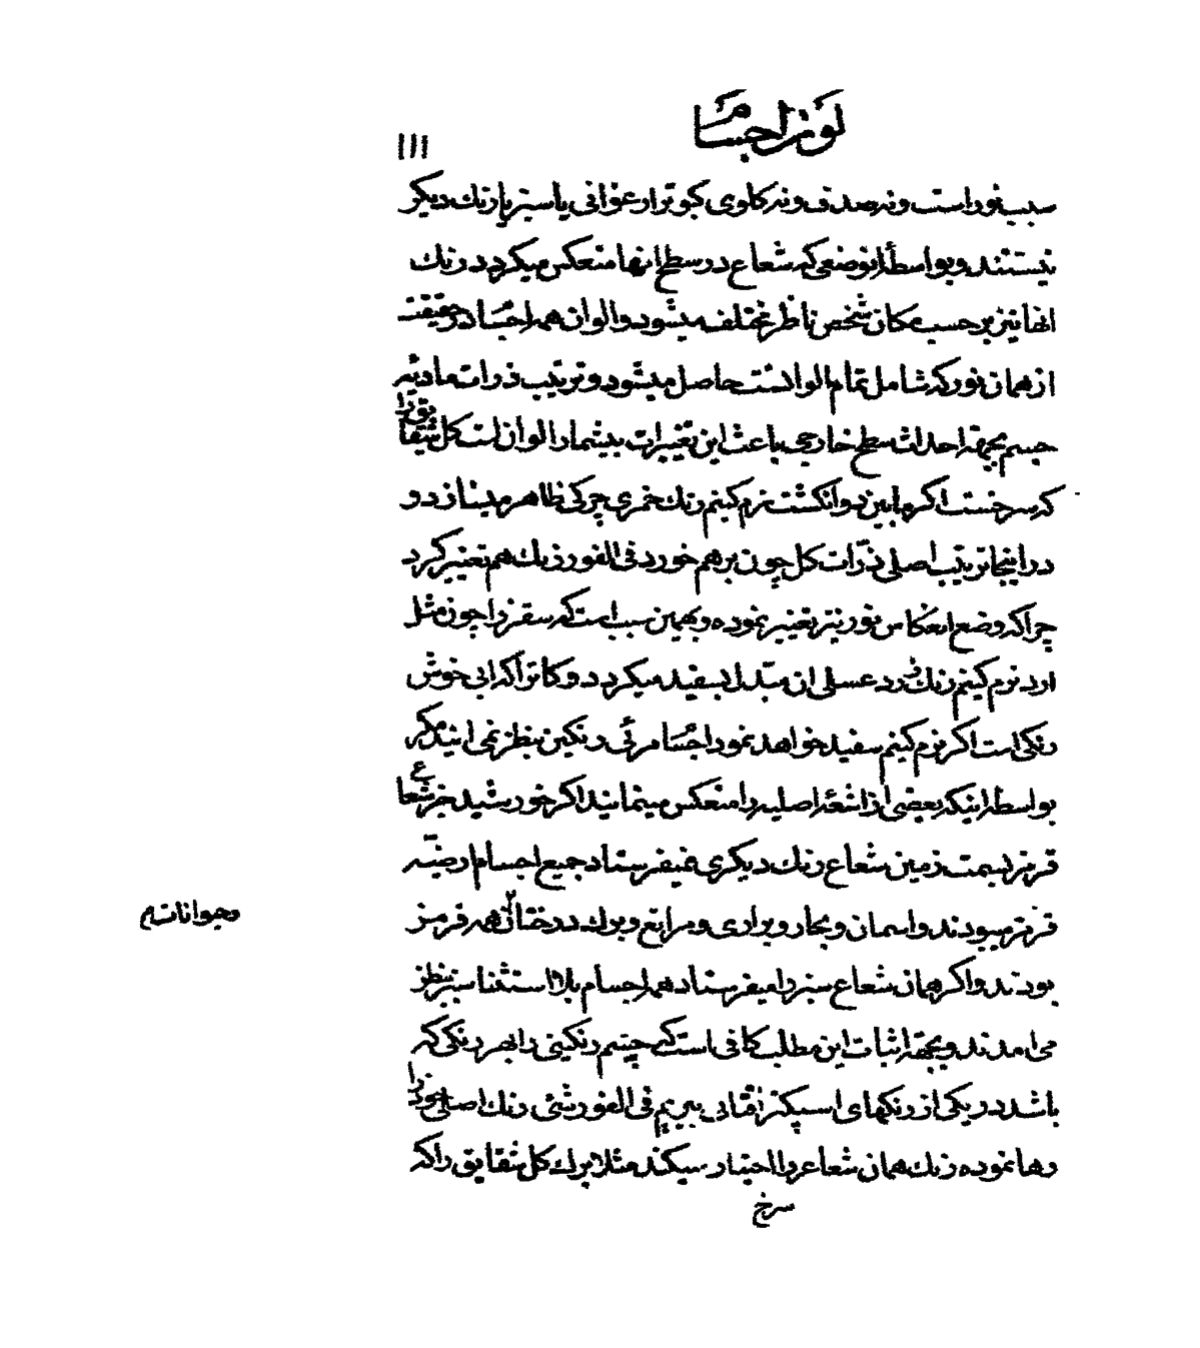 لون اجسام
۱۱۱
سبب نور است و نه صدف و نه کلوی کبوتر ارغوانی یا سبز یا رنك دیکر
نیستند و بواسطهٔ انوضعی که شعاع در سطح انها منعکس میکردد رنك
انها نیز بر حسب مکان شخص ناظر مختلف میشود و الوان همه اجساد در حقیقت
از همان نور که شامل تمام الوانست حاصل میشود و ترتیب ذرات مادیّه
جسم بجهة احداث سطح خارجی باعث این تغییرات بیشمار الوان است کل شقایق را
که سرخست اکر مابین دو انکشت نرم کنیم رنك خمری چرکی ظاهر میسازد و
در اینجا ترتیب اصلی ذرّات کل چون برهم خورد فی الفور رنك هم تغییر کرد
چرا که وضع انعکاس نور نیز تغییر نموده و بهمین سبب است که سقز را چون مثل
ارد نرم کنیم رنك زرد عسلی ان مبتدل بسفید میکردد و کات را که ابی خوش
رنکی است اکر نرم کنیم سفید خواهد نمود اجسام مرئی رنکین بنظر نمی ایند مکر
بواسطه اینکه بعضی از اشعهٔ اصلیه را منعکس مینمایند اکر خورشید جز شعاع
قرمز بسمت زمین شعاع رنك دیکری نمیفرستاد جمیع اجسام ارضیّه
قرمز میبودند و اسمان و بحار و براری و مراتع و برك درختان همه قرمز
وحیوانات م
بودند و اکر همان شعاع سبز را میفرستاد همه اجسام بلا استثنا سبز بنظر
می امدند و بجهة اثبات این مطلب کافی است که جسم رنکینی را بهر رنکی که
باشد در یکی از رنکهای اسپکتر افتابی ببریم فی الفور شئی رنك اصلی خود را
رها نموده رنك همان شعاع را اختیار میکند مثلا برك کل شقایق را که
سرخ